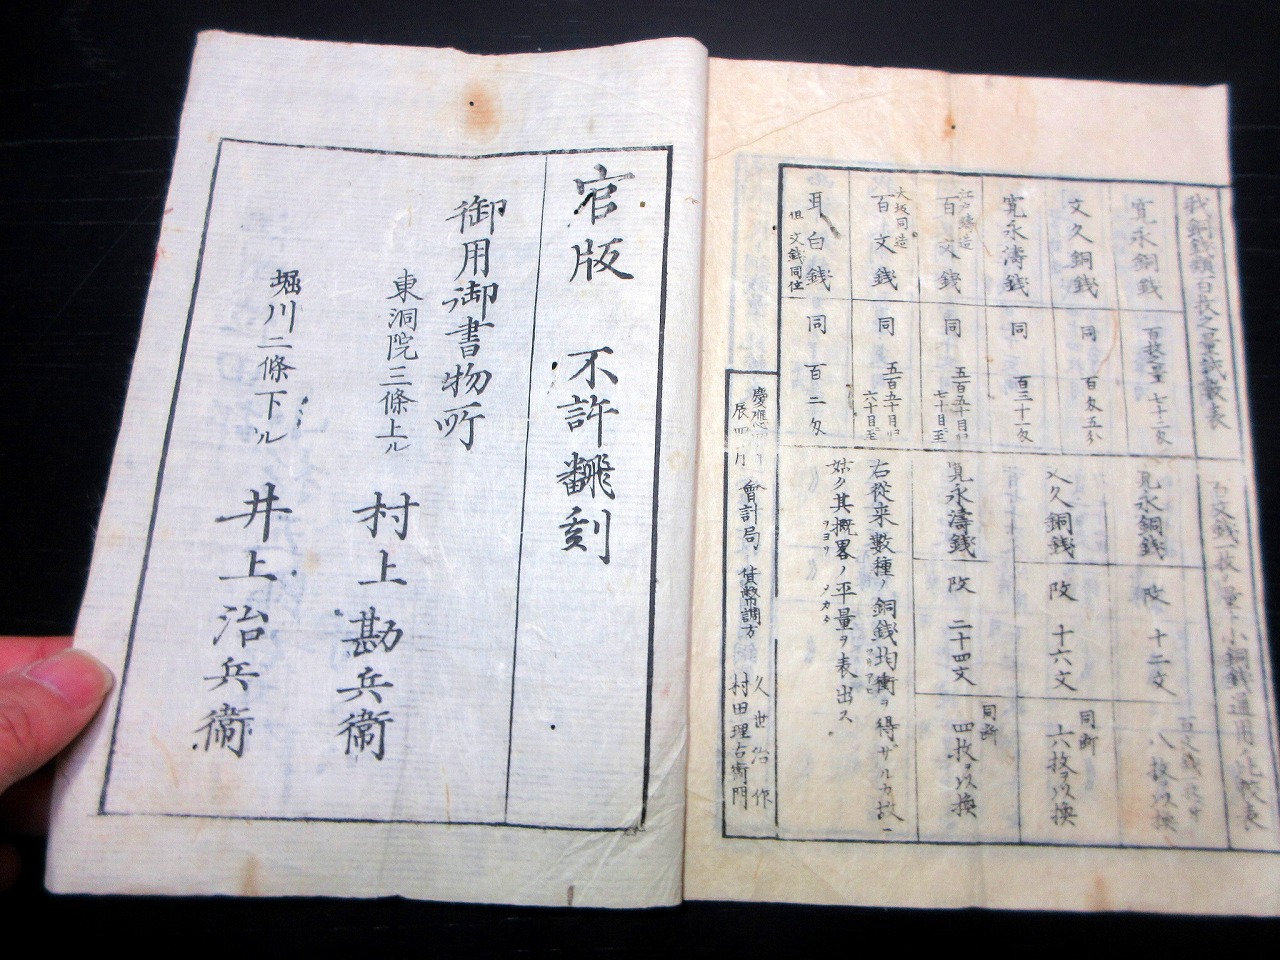 我銅錢類百枚之量試數表
寛永銅錢 百枚量 七十二匁
文久銅錢 同 百匁五分
寛永濤錢 同 百三十一匁
江戸鑄造 百文錢 同 五百五十目ヨリ七十目至
大坂同造 百文錢 同 五百五十目ヨリ六十目至
耳白錢 但文錢同位 同 百二匁
百文錢一枚ノ量ト小銅錢通用ノ比較表
寛永銅錢 改 十二文 八枚ヲ以換
文久銅錢 改 十六文 同断 六枚ヲ以換
寛永濤錢 改 二十四文 同断 四枚ヲ以換
右從来數種ノ銅錢均衡ヲ得ザルカ故ニ
姑ク其概畧ノ平量ヲ表出ス
慶應四年
辰四月
會計局 貨幣調方 久世治作
村田理右衛門
官版 不許飜刻
御用御書物所
東洞院三條上ル 村上勘兵衛
堀川二條下ル 井上治兵衛